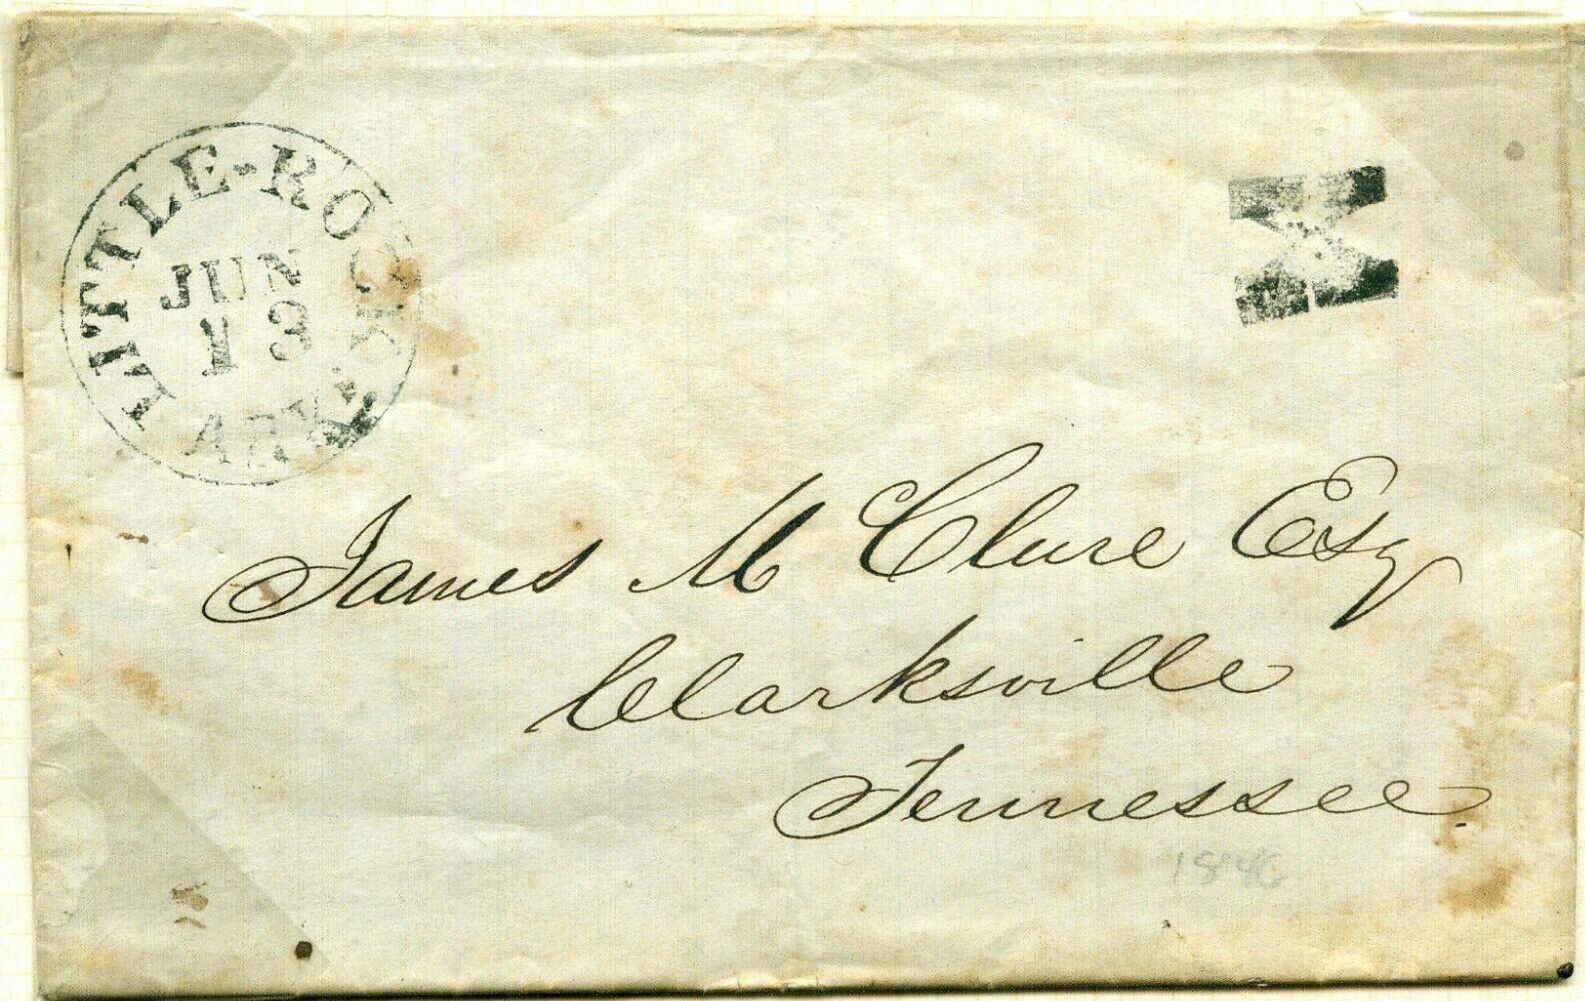 LITTLE-ROCK
ARK.
JUN
13
X
James M Clure Esq
Clarksville
Tennessee.
1846